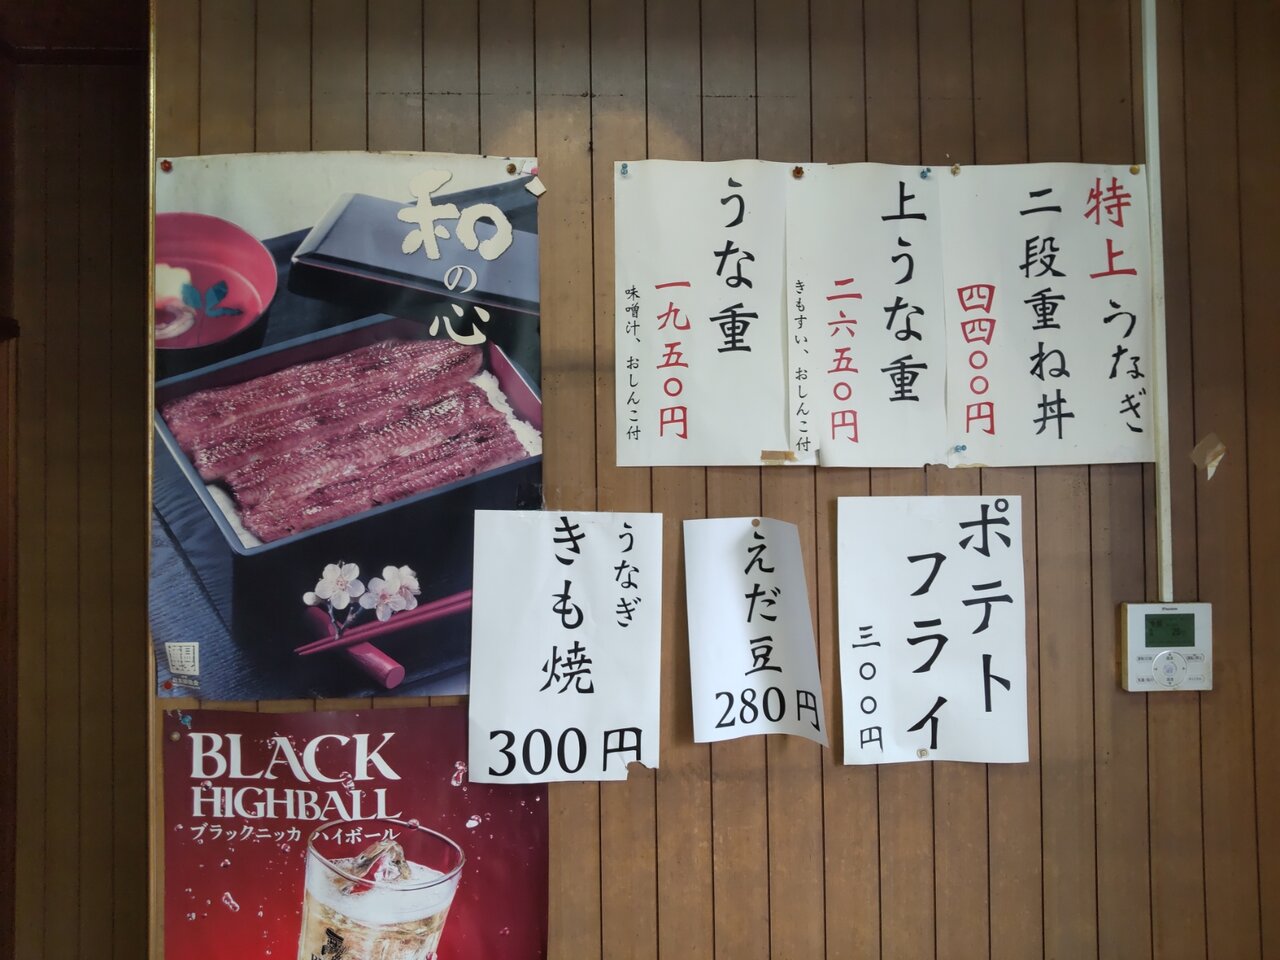 和
の
心
特上うなぎ
二段重ね丼
四四〇〇円
上うな重
二六五〇円
きもすい、おしんこ付
うな重
一九五〇円
味噌汁、おしんこ付
うなぎ
きも焼
300円
えだ豆
280円
ポテト
フライ
三〇〇円
BLACK
HIGHBALL
ブラックニッカ ハイボール